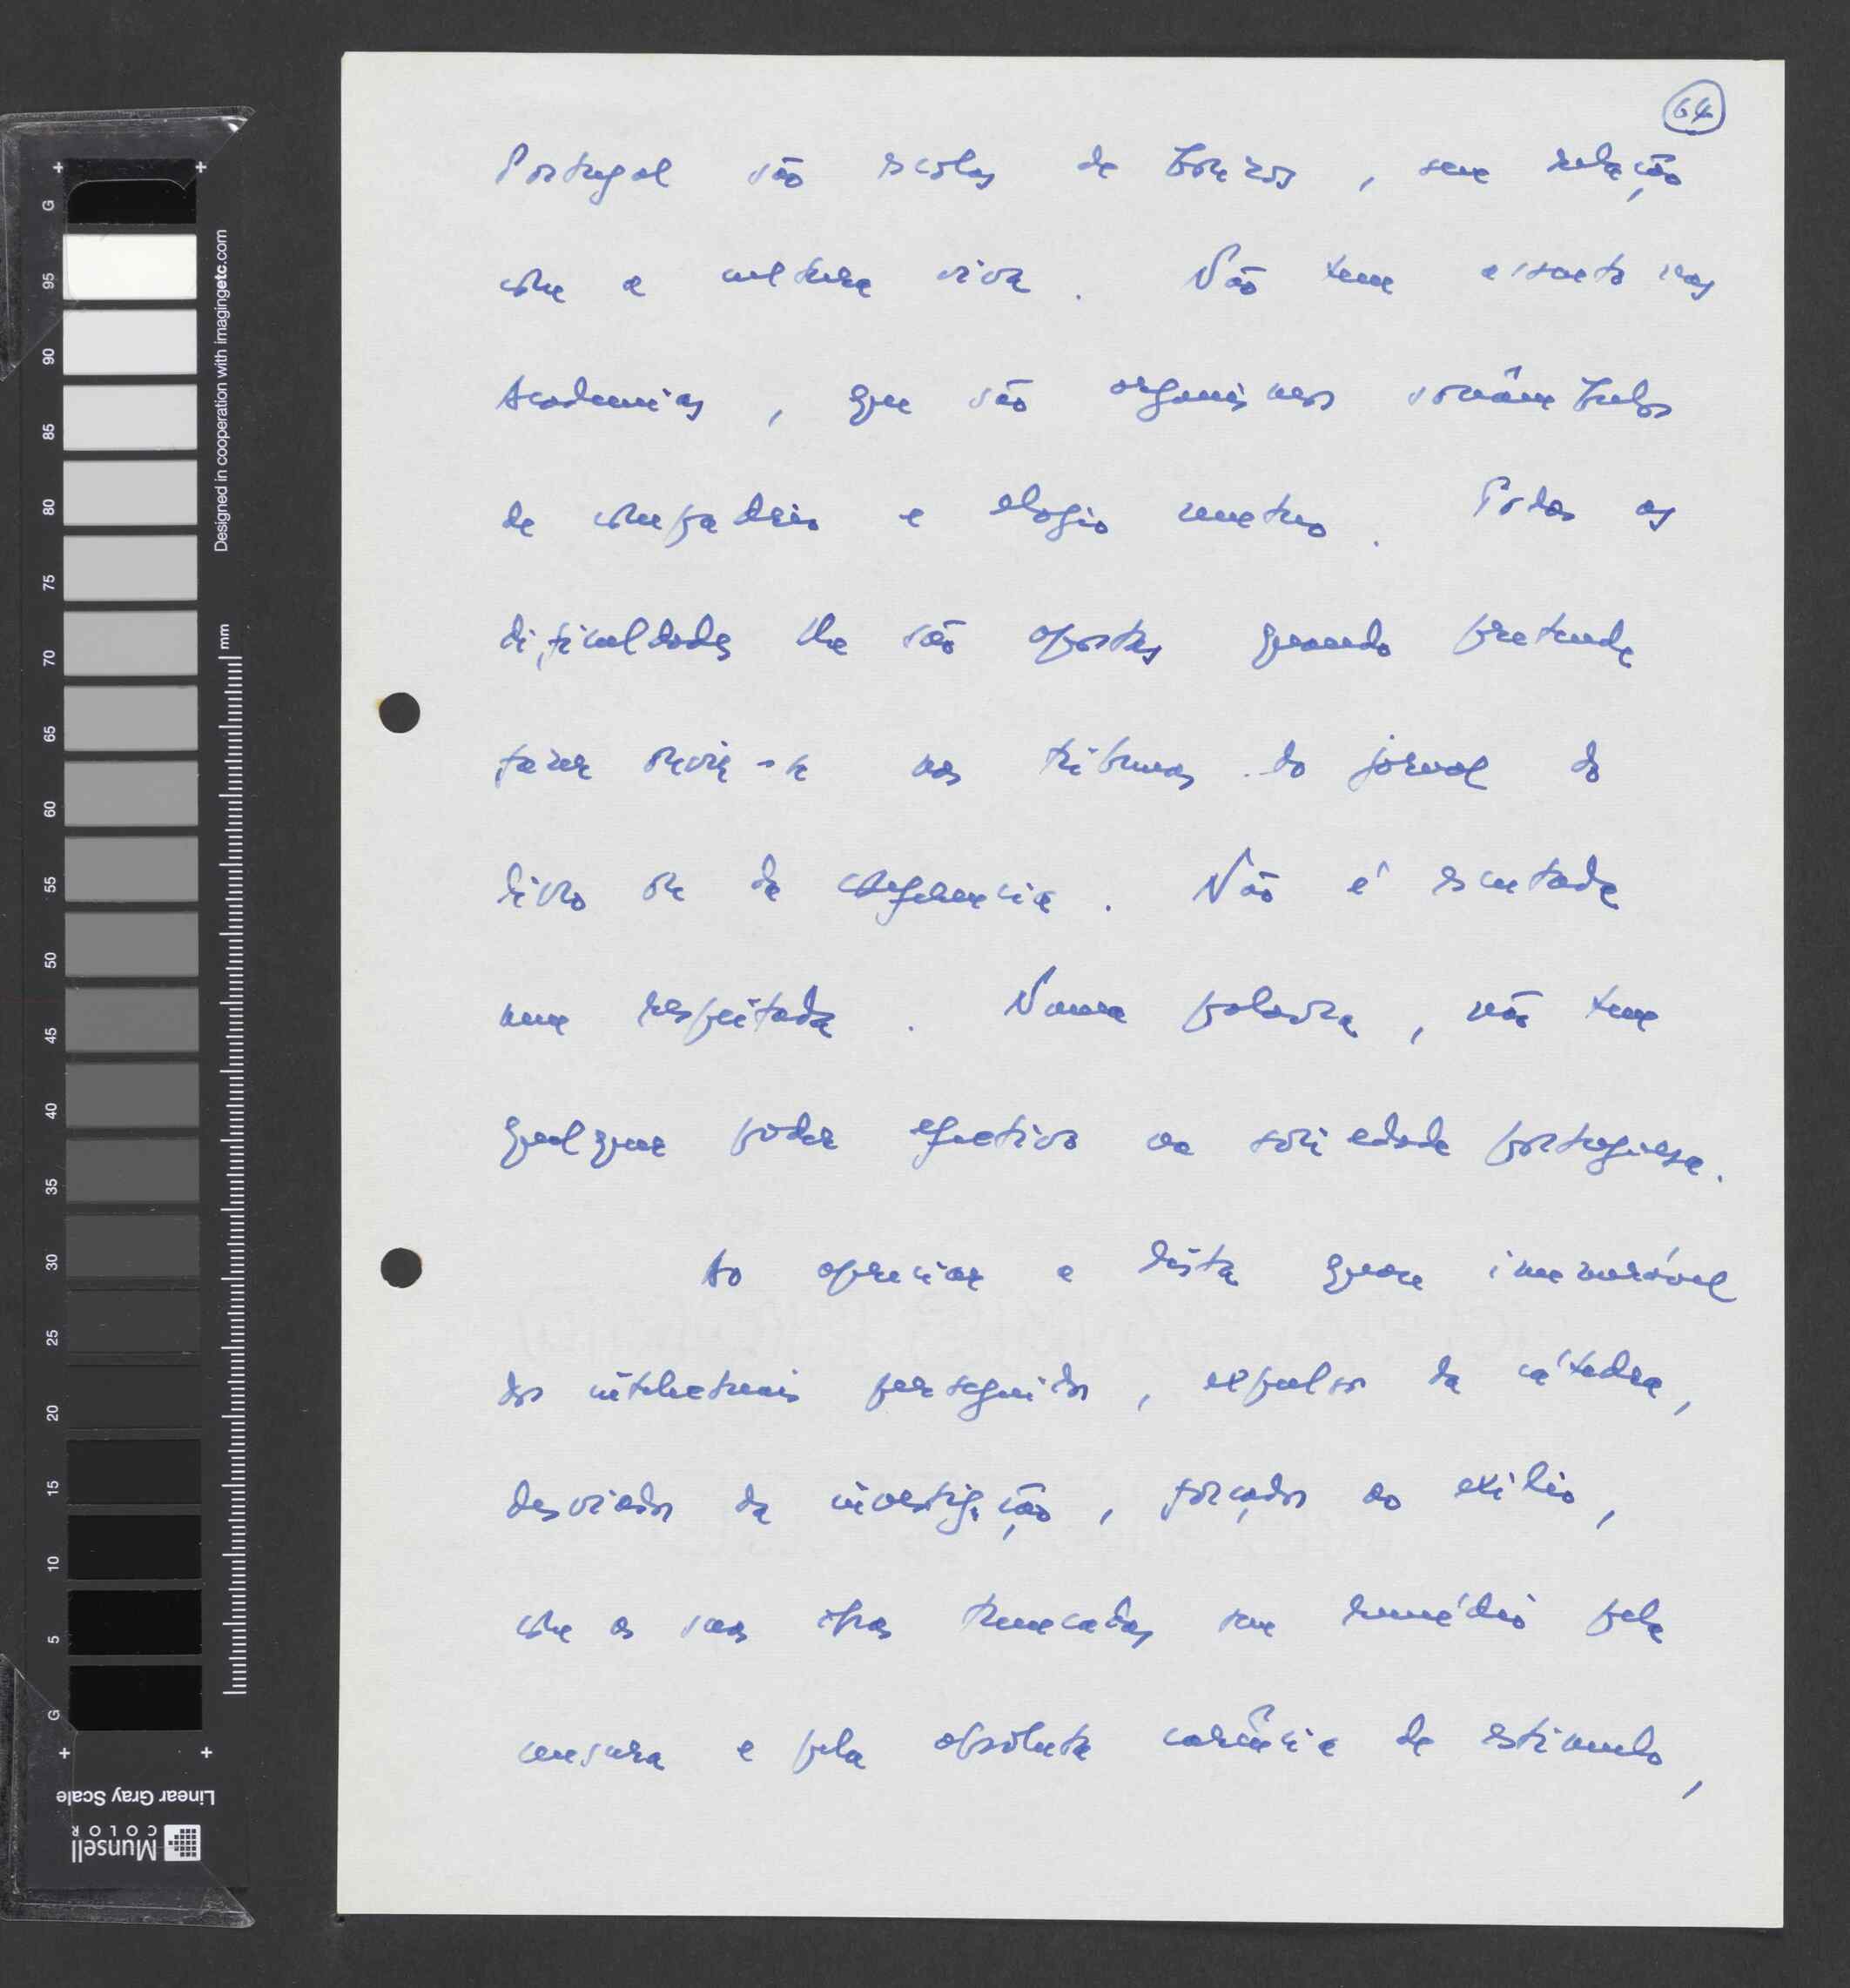 64
Portugal são escolas de bonzos, sem relação
com a cultura viva. Não tem assento nas
Academias, que são organismos sonâmbulos
de compadrio e elogio mútuo. Todas as
dificuldades lhe são opostas quando pretende
fazer ouvir-se nas tribunas do jornal do
livro ou da conferencia. Não é escutada
nem respeitada. Numa palavra, não tem
qualquer poder efectivo na sociedade portuguesa.
Ao apreciar a lista quase inumerável
dos intelectuais perseguidos, expulsos da cátedra,
desviados da investigação, forçados ao exilio,
com as suas obras truncadas sem remédio pela
censura e pela absoluta carência de estimulo,
G 95 90 85 80 75 70 65 60 55 50 45 40 35 30 25 20 15 10 5 G
Designed in cooperation with imagingetc.com
mm
Linear Gray Scale
Munsell
COLOR